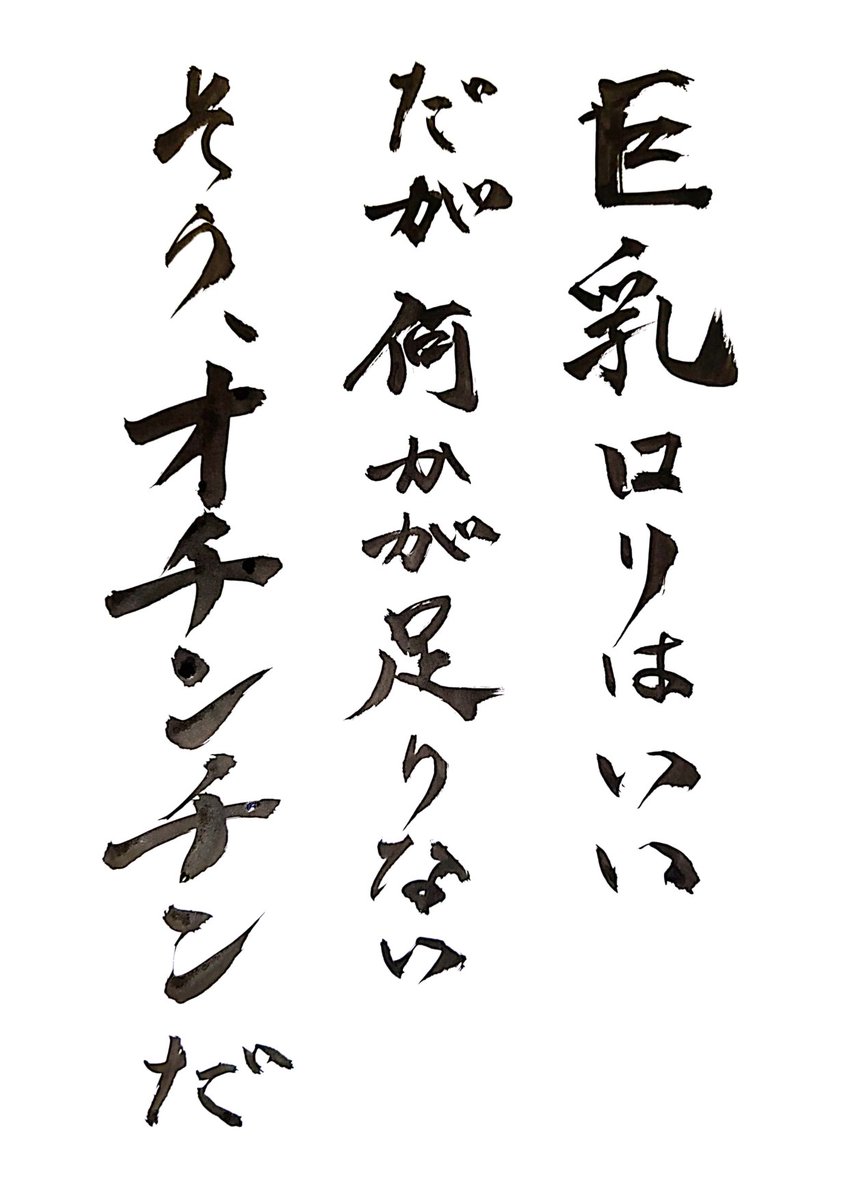 巨乳ロリはいい
だが何かが足りない
そう、オチンチンだ